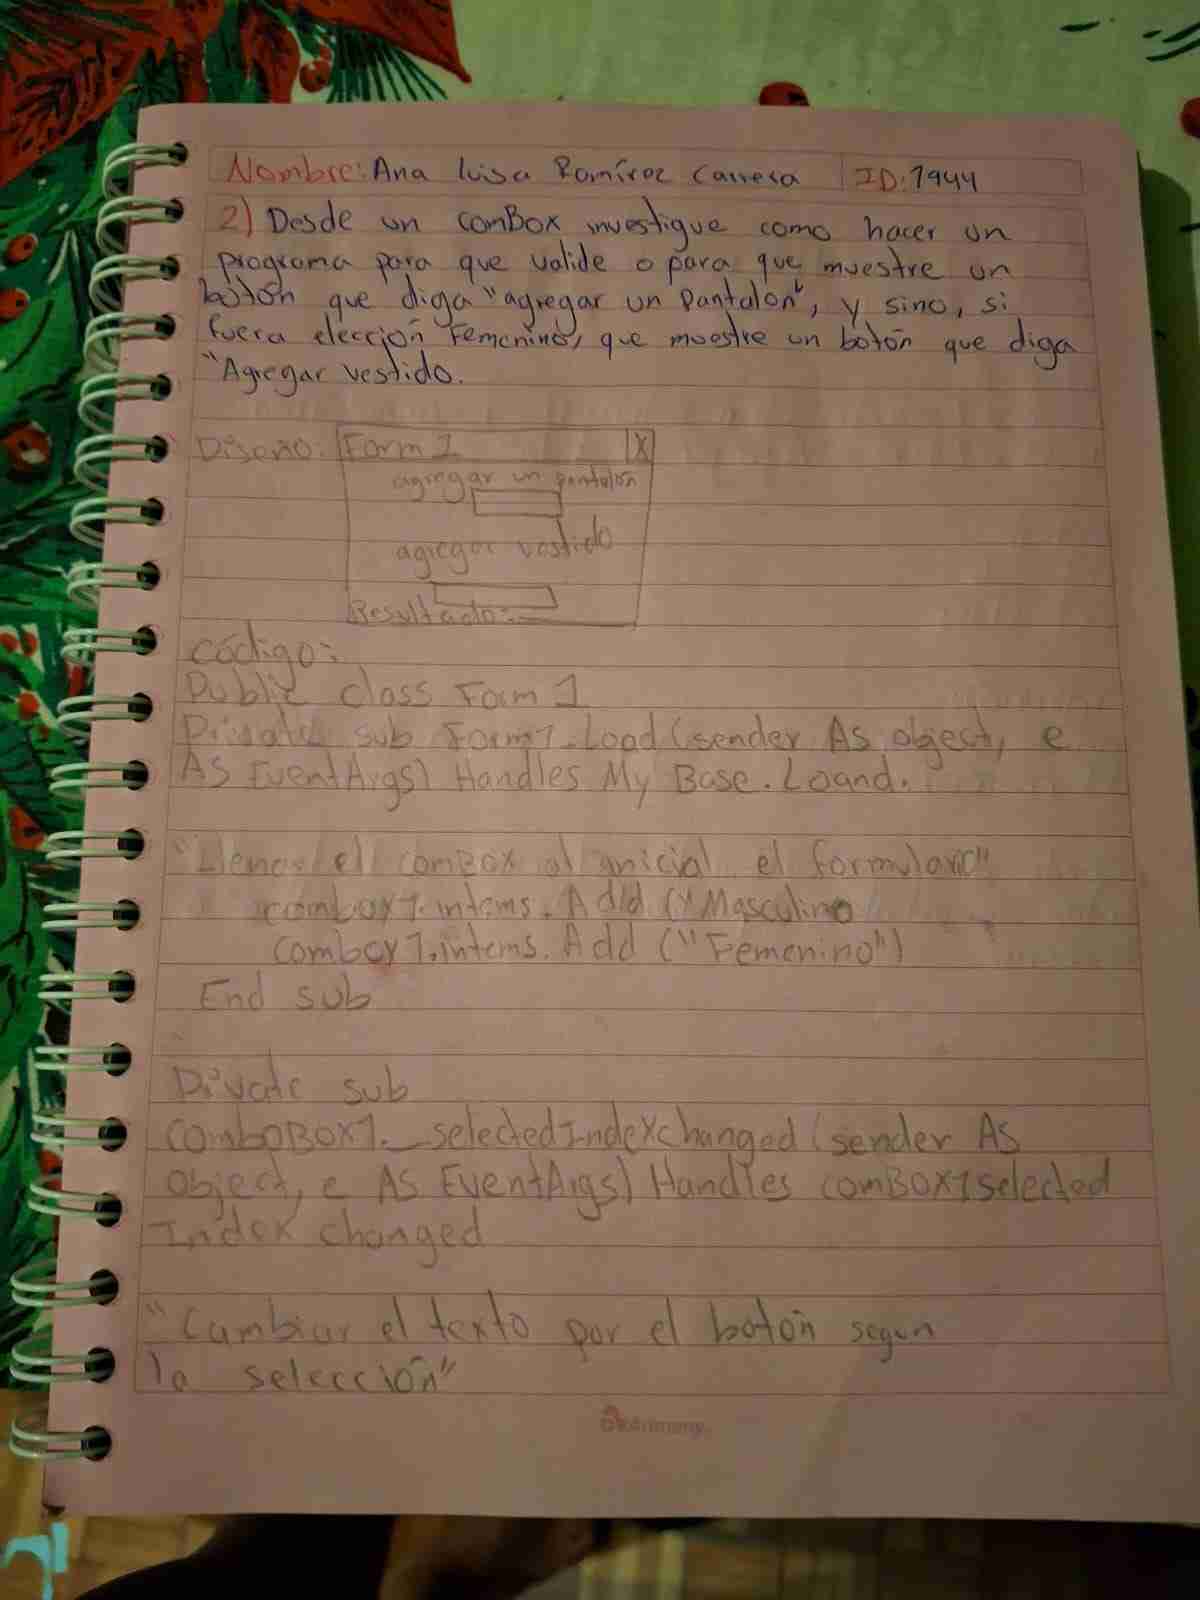 Nombre: Ana Luisa Ramírez Carrera ID: 1944
2) Desde un comBox investigue como hacer un
programa para que valide o para que muestre un
botón que diga "agregar un Pantalón", y sino, si
fuera elección Femenino, que muestre un botón que diga
"Agregar vestido.
Diseño: Form 1 X
agregar un pantalón
agregar vestido
Resultado:
código:
Public class Form 1
Private sub Form1.Load (sender As object, e
As EventArgs) Handles My Base. Loand.
"Llenar el comBox al inicial el formulario"
combox1.intems. Add ("Masculino
combox1.intems. Add ("Femenino")
End sub
Private sub
comboBox1._selectedIndexchanged (sender As
Object, e As EventArgs) Handles comBox1selected
Index changed
"Cambiar el texto por el botón segun
la selección"